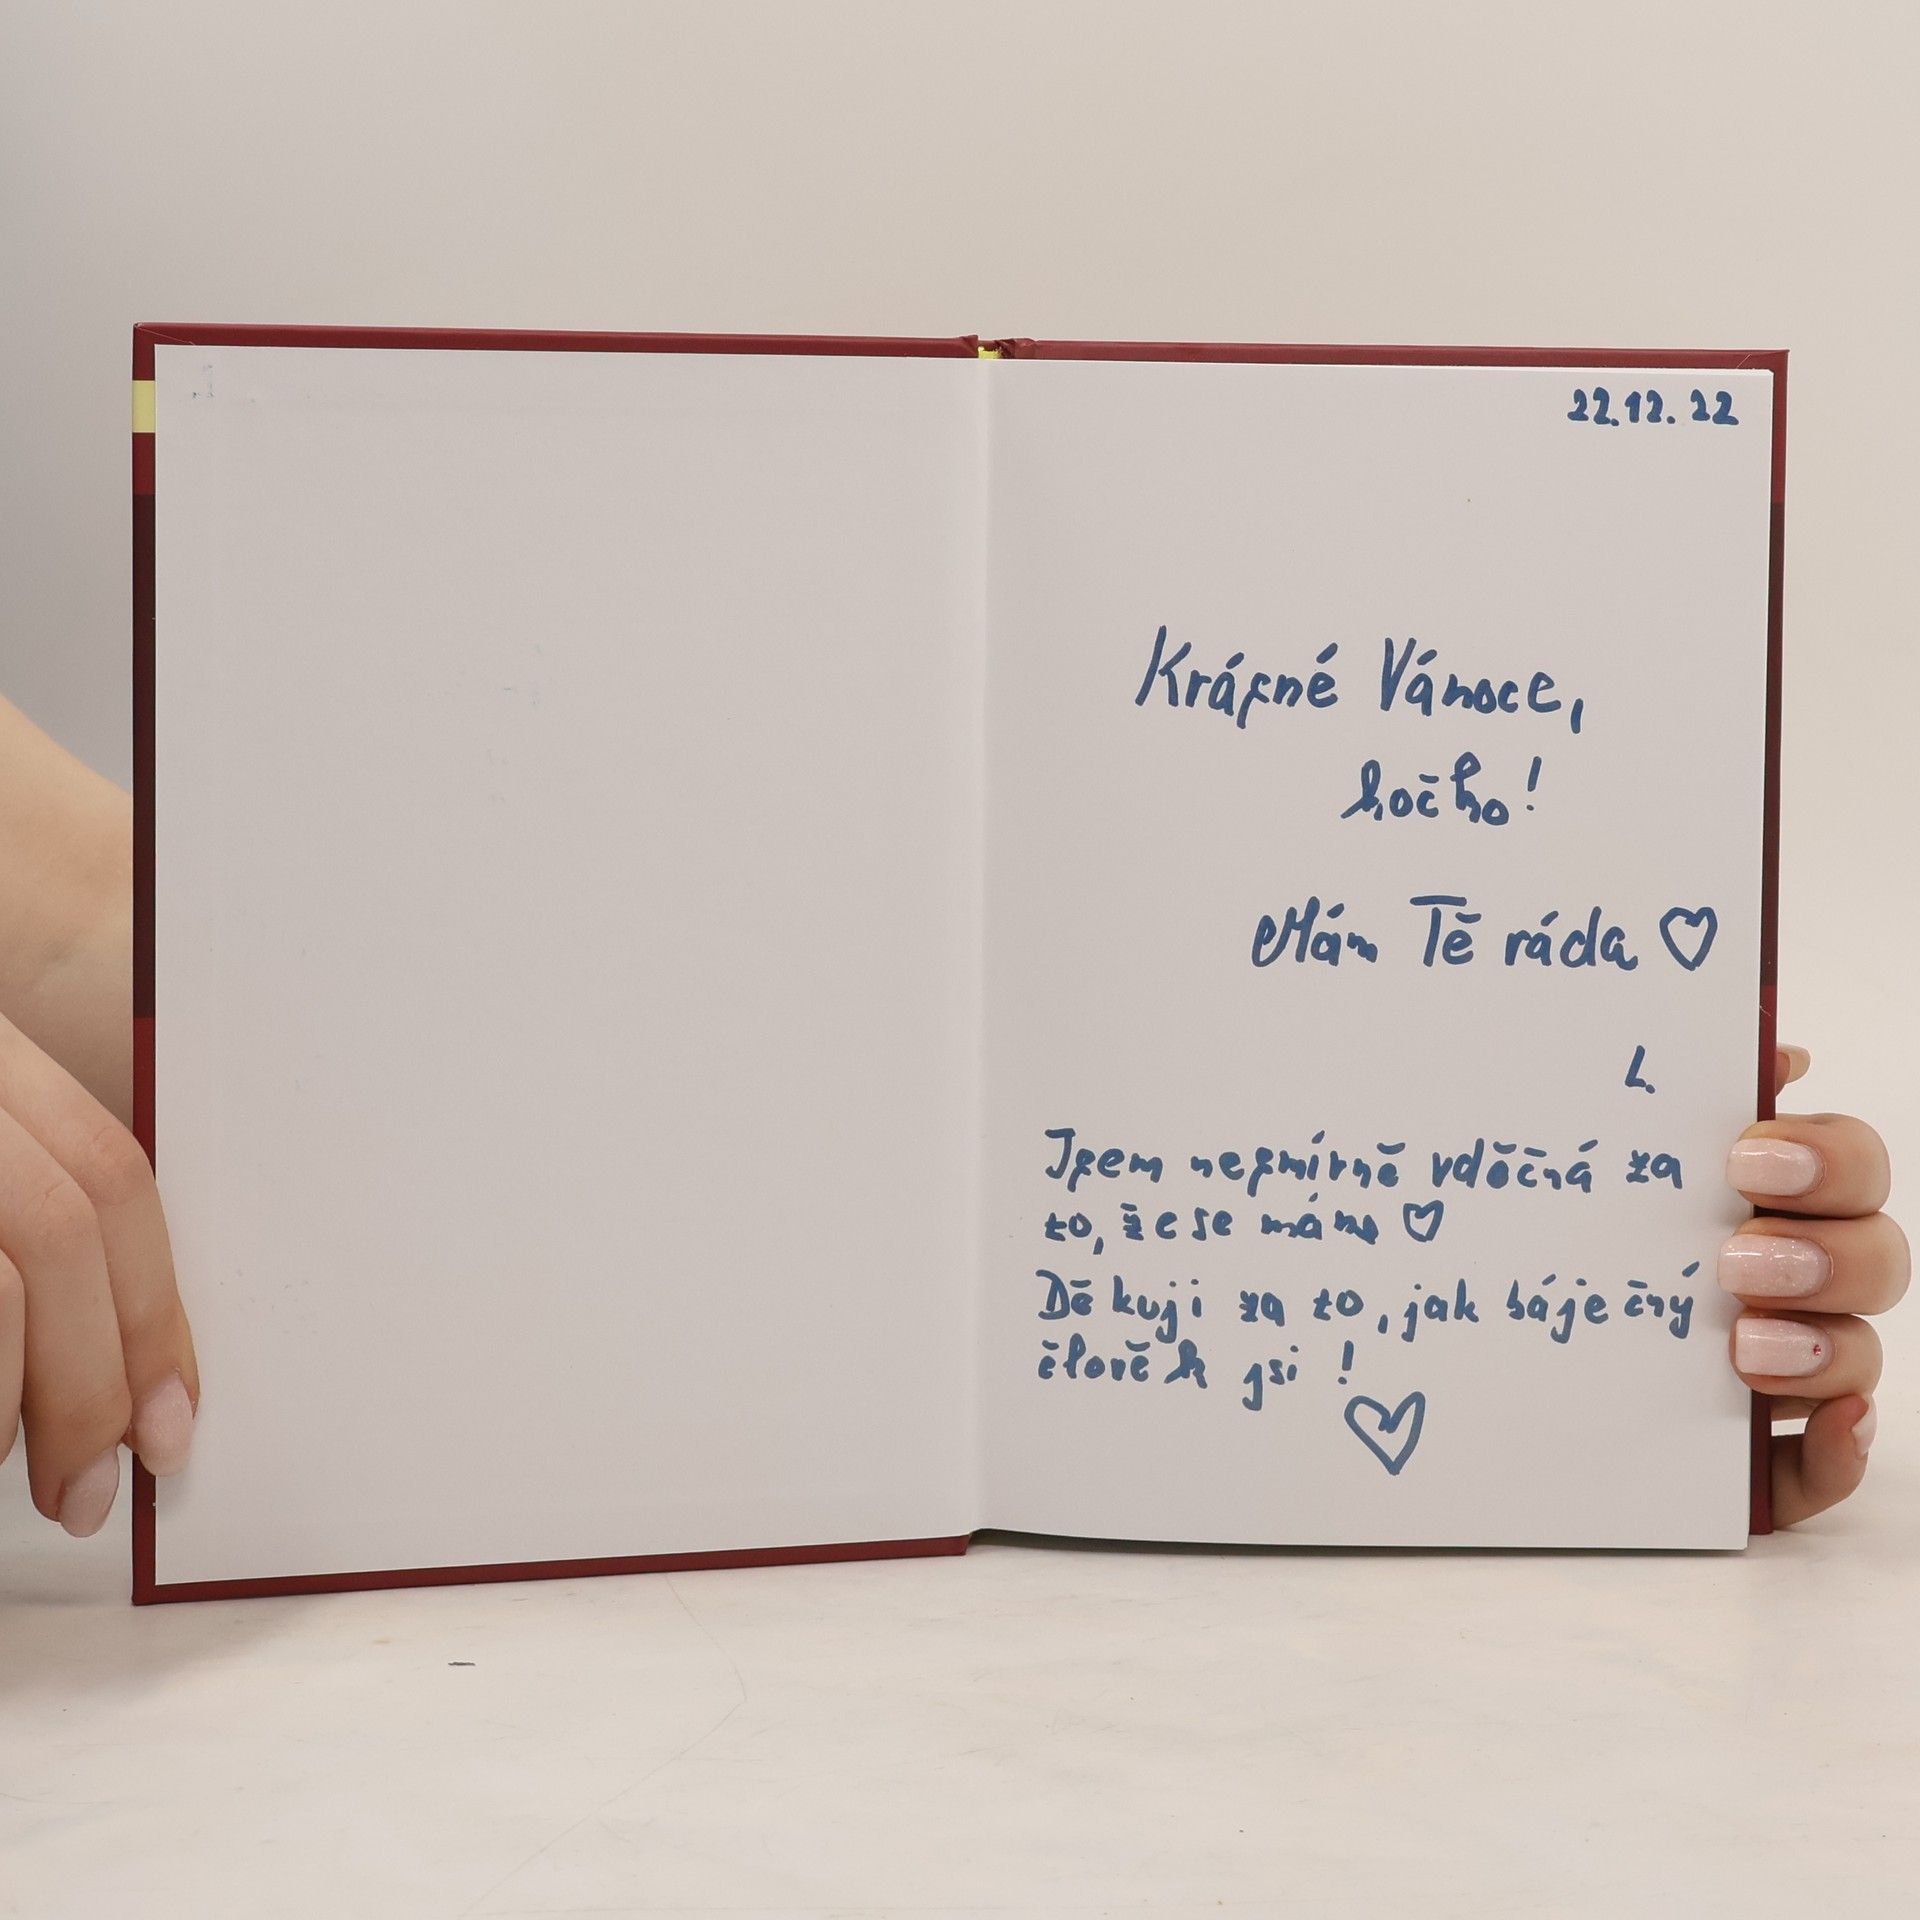 22.12.22
Krásné Vánoce,
kočko!
Mám Tě ráda ♡
L.
Jsem nesmírně vděčná za
to, že se máme ♡
Děkuji za to, jak báječný
člověk jsi!
♡